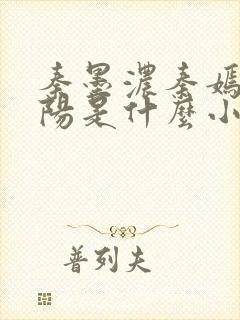 秦墨濃秦嫣
陽是什麼小
普列夫